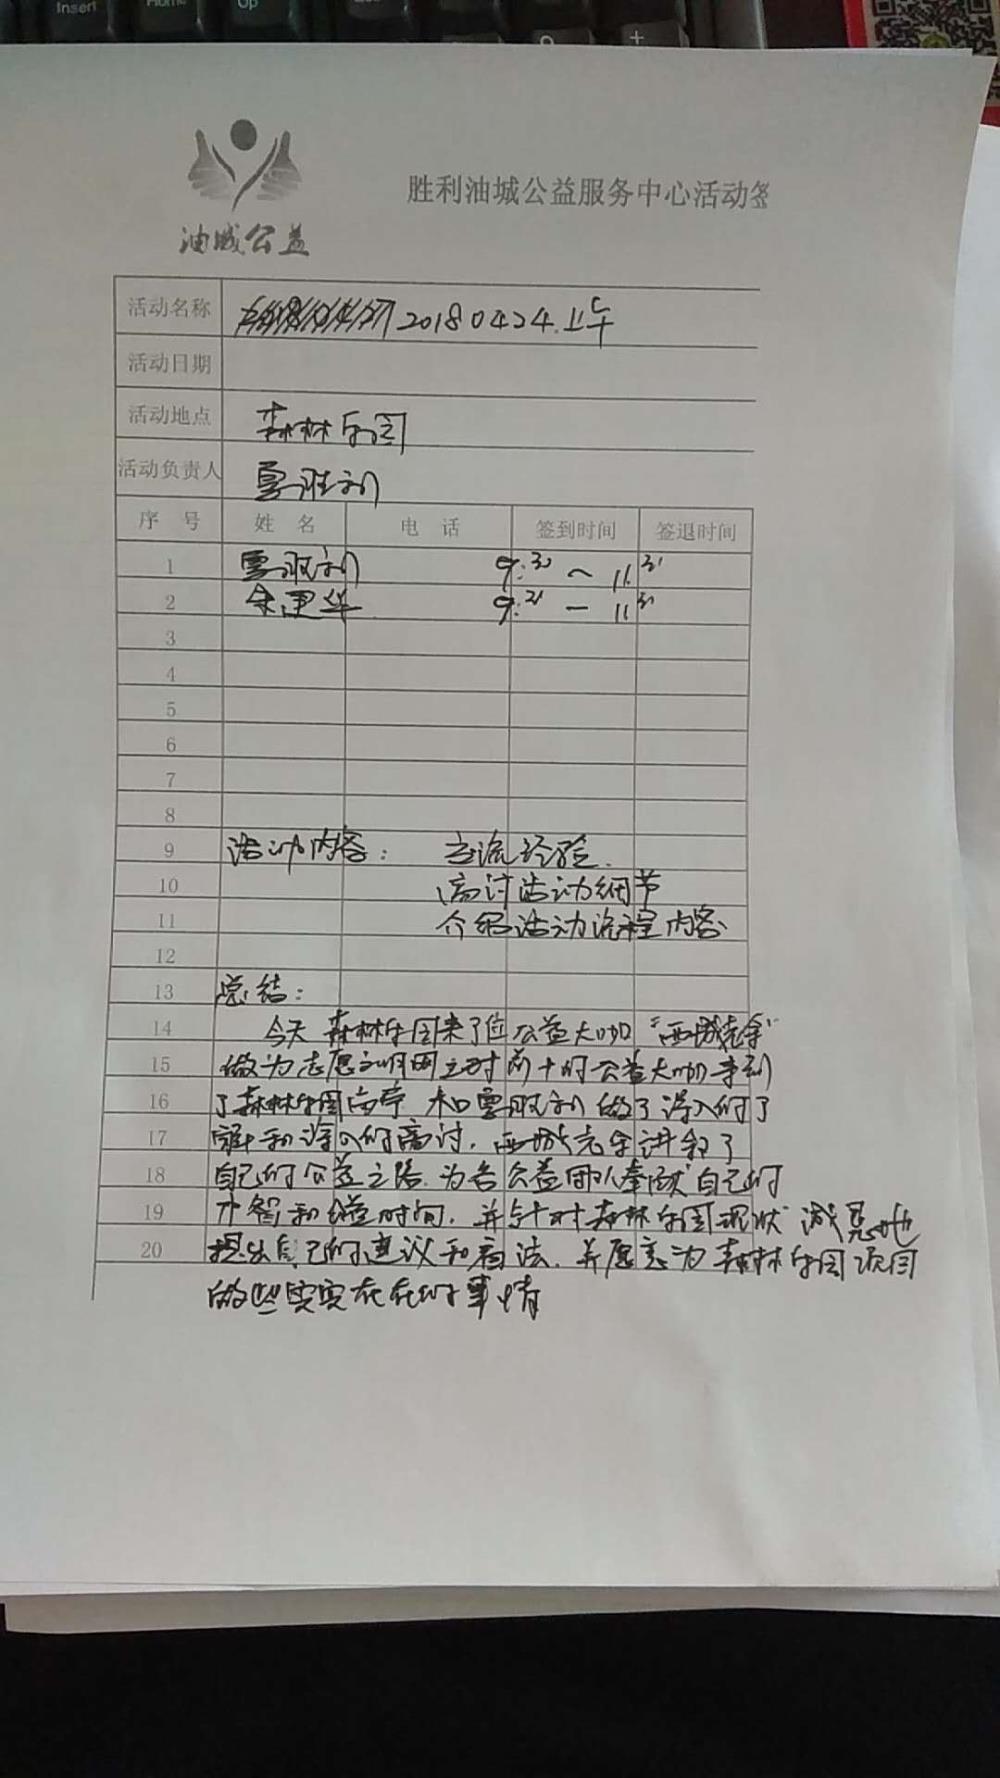 Insert
Home
Up
胜利油城公益服务中心活动签
油城公益
活动名称 20180424.上午
活动日期
活动地点 森林乐园
活动负责人 覃胜利
序 号 姓 名 电 话 签到时间 签退时间
1 覃胜利 9:30 ~ 11:30
2 余建华 9: — 11
3
4
5
6
7
8
9 活动内容: 交流经验.
10 商讨活动细节
11 介绍活动流程内容
12
13 总结:
14 今天森林乐园来了位公益大咖"西城老余"
15 做为志愿 网 时前十的公益大咖来到
16 了森林乐园 和覃胜利做了深入的了
17 解和深入的商讨.西城老余讲和了
18 自己的公益之路.为各公益团队奉献自己的
19 才智和 时间.并针对森林乐园现状 诚恳地
20 提出自己的建议和看法.并愿意为森林乐园项目
做些实实在在的事情